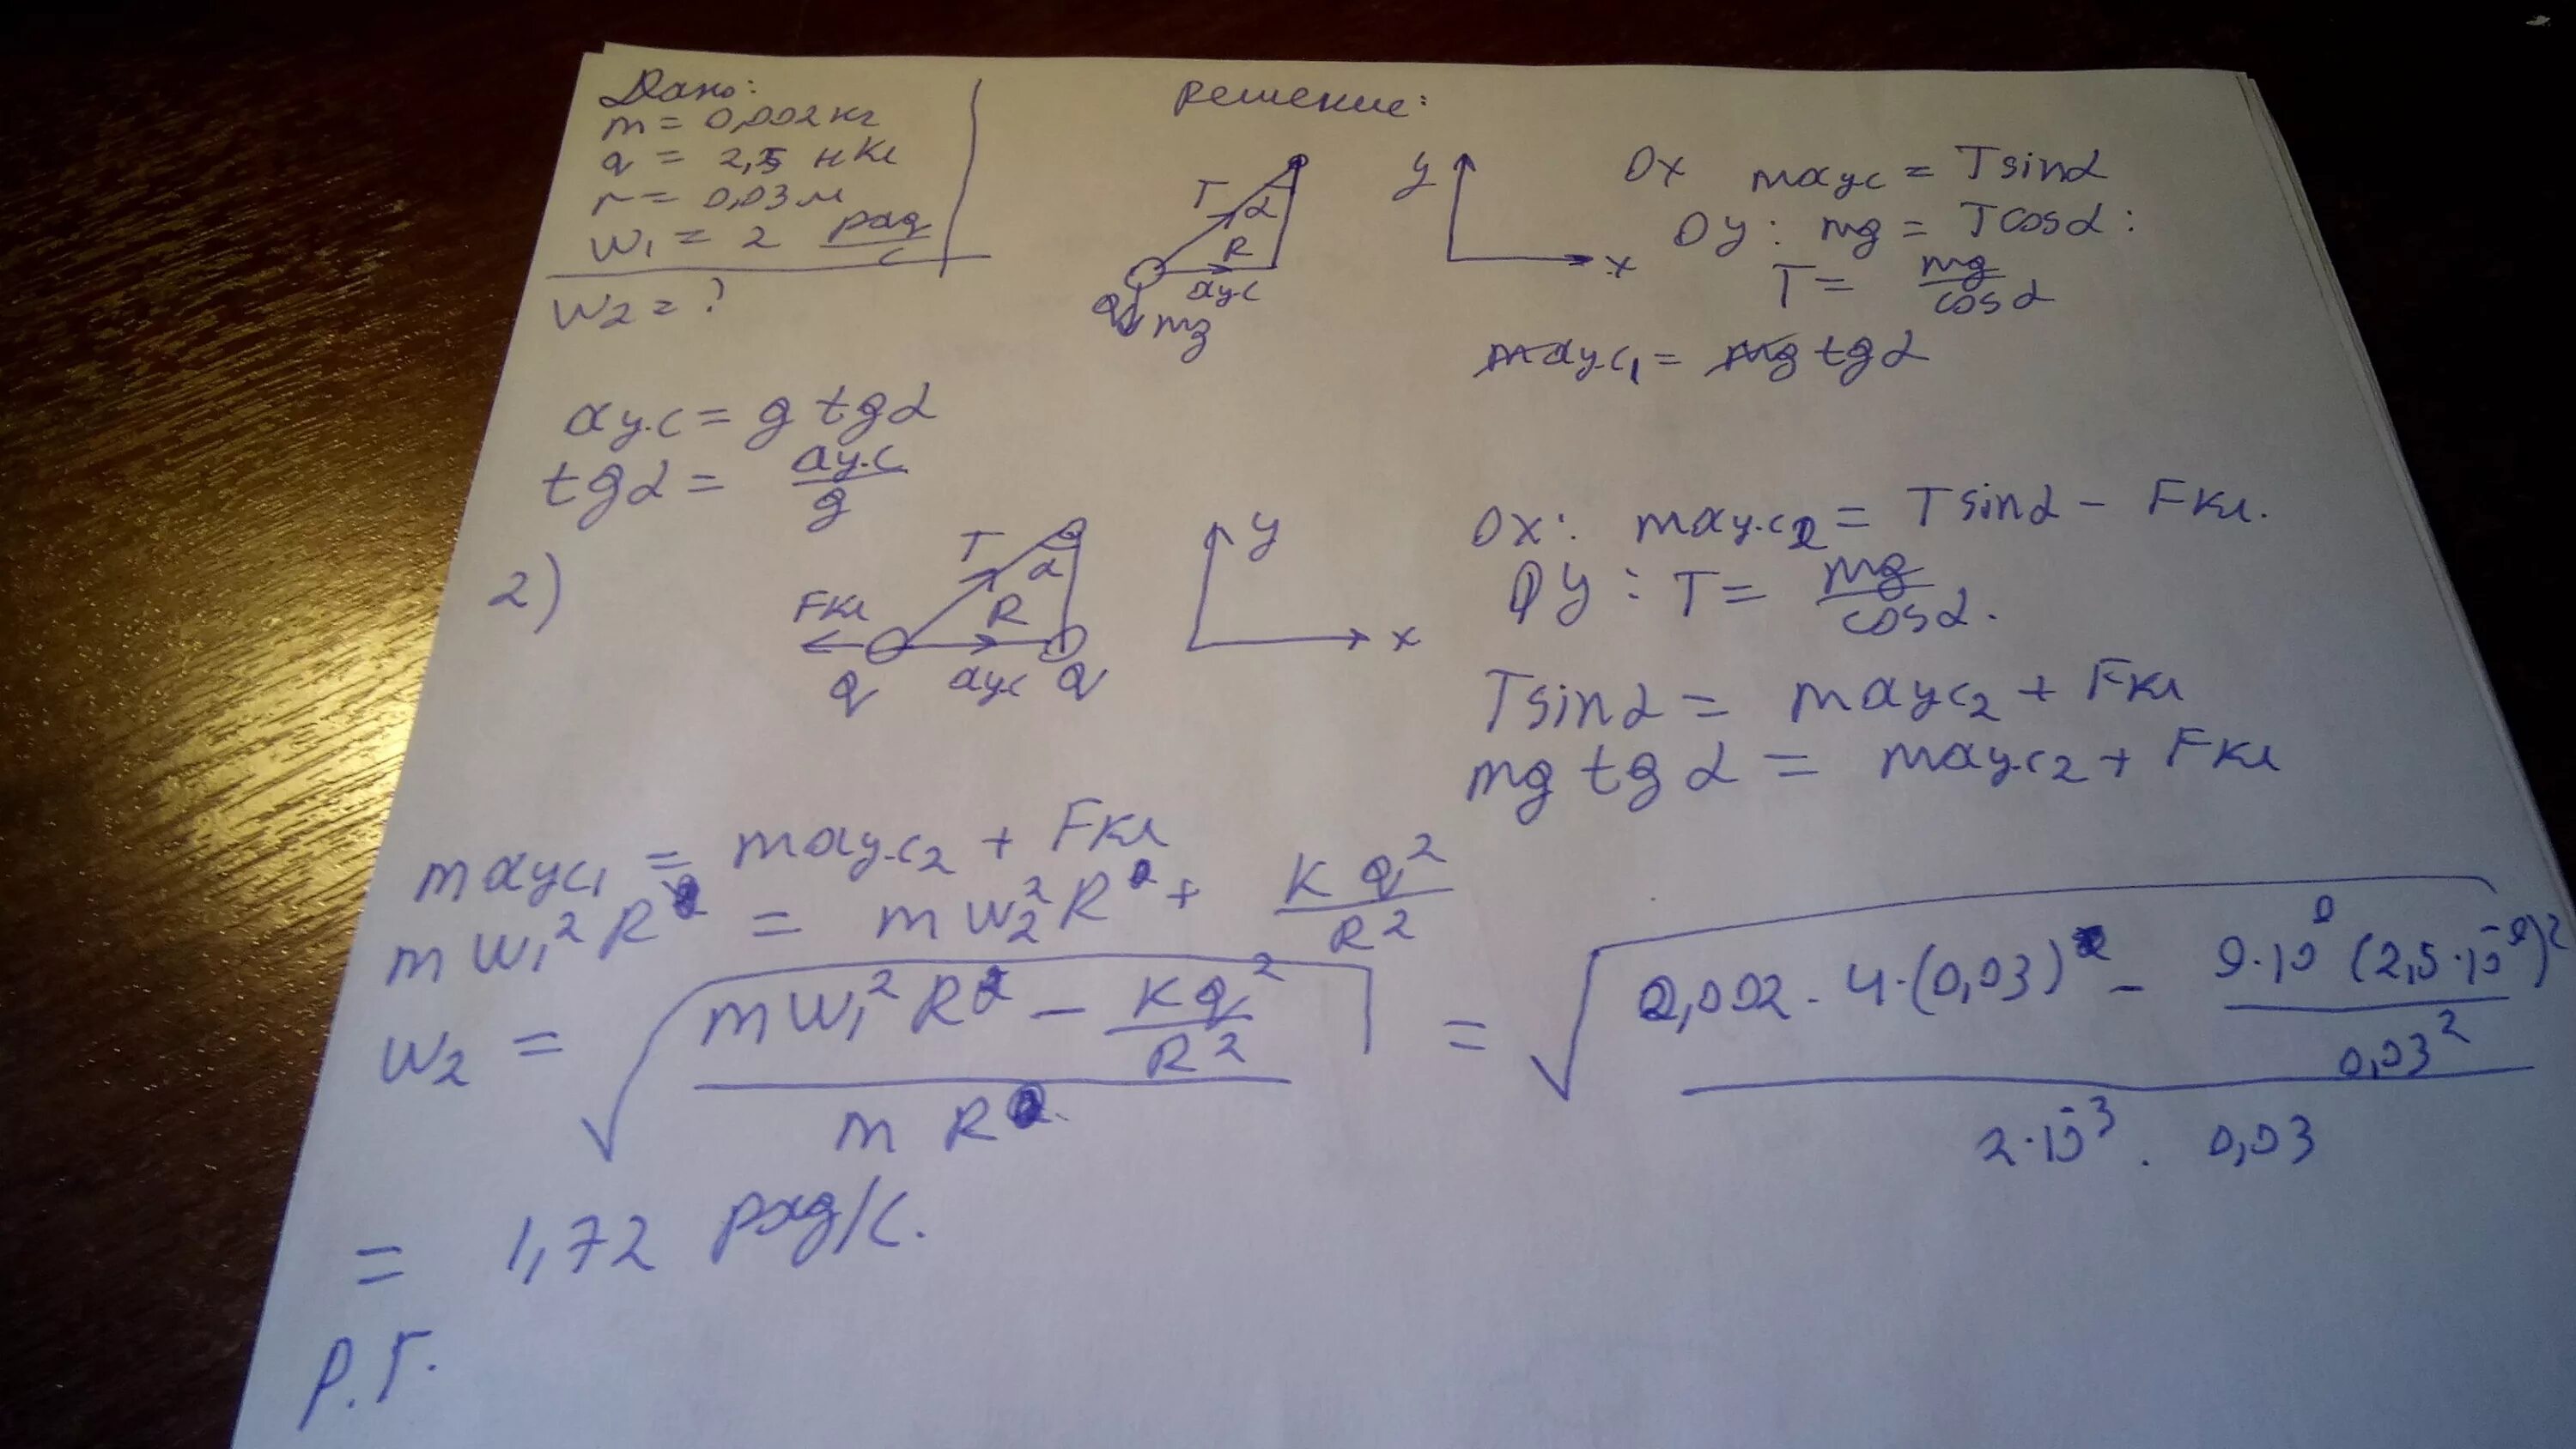 Дано:
m = 0,002 кг
q = 2,5 нКл
r = 0,03 м
W₁ = 2 рад/с
W₂ = ?
Решение:
T α R aу.с q mg
y x
OX maу.с = T sinα
OY: mg = T cosα:
T = mg/cosα
maу.с₁ = mg tgα
aу.с = g tgα
tgα = aу.с/g
2)
T α Fкл R q aу.с q
y x
OX: maу.с₂ = T sinα - Fкл.
OY: T = mg/cosα.
T sinα = maу.с₂ + Fкл
mg tgα = maу.с₂ + Fкл
maу.с₁ = maу.с₂ + Fкл
mW₁²R = mW₂²R + Kq²/R²
W₂ = √((mW₁²R - Kq²/R²)/(mR)) = √((0,002 · 4 · (0,03) - 9·10⁹ (2,5·10⁻⁹)²/0,03²)/(2·10⁻³ · 0,03))
= 1,72 рад/с.
Р.Г.